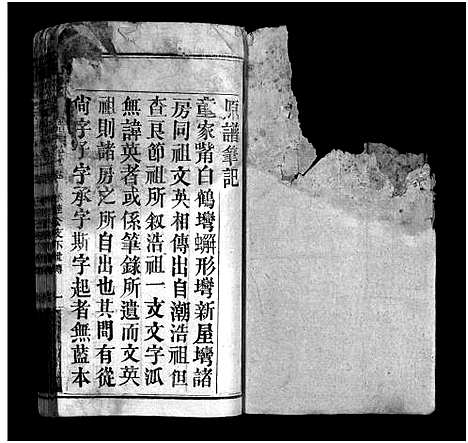 原譜筆記
童家觜白鶴塆蠏形塆新屋塆諸
房同祖文英相傳出自潮浩祖但
查良節祖所叙浩祖一支文字派
無諱英者或係筆錄所遺而文英
祖則諸房之所自出也其問有從
尙字子字承字斯字起者無藍本